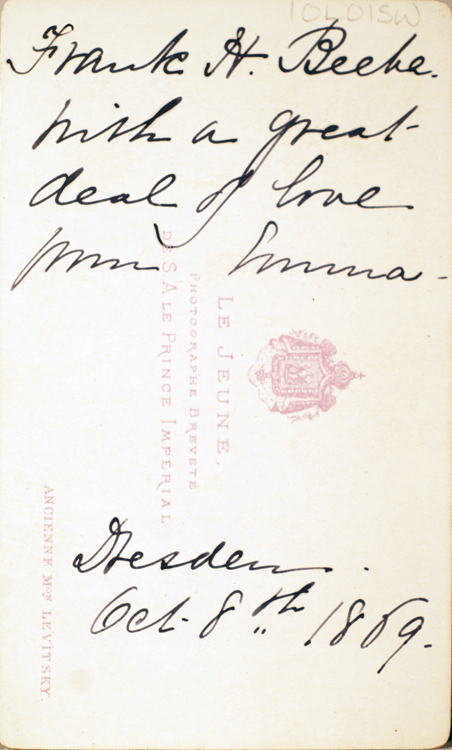 10L01SW
Frank H. Beebe.
With a great
deal of love
from Emma.
LE JEUNE,
PHOTOGRAPHE BREVETÉ
DE S.A. LE PRINCE IMPÉRIAL
ANCIENNE MON LEVITSKY.
Dresden.
Oct. 8th 1869.